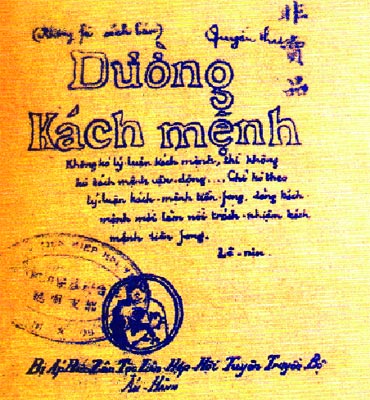 (Không fải sách bán) Quyển thứ
非賣品
Dường
Kách mệnh
Không kó lý luận kách mệnh, thì không
kó kách mệnh vận-động.... Chỉ kó theo
lý luận kách-mệnh tiền-fong, đảng kách
mệnh mới làm nổi trách-nhiệm kách
mệnh tiền fong.
Lê-nin
Bị Áp Bức Dân Tộc Liên Hợp Hội Tuyên Truyền Bộ
Ấn Hành